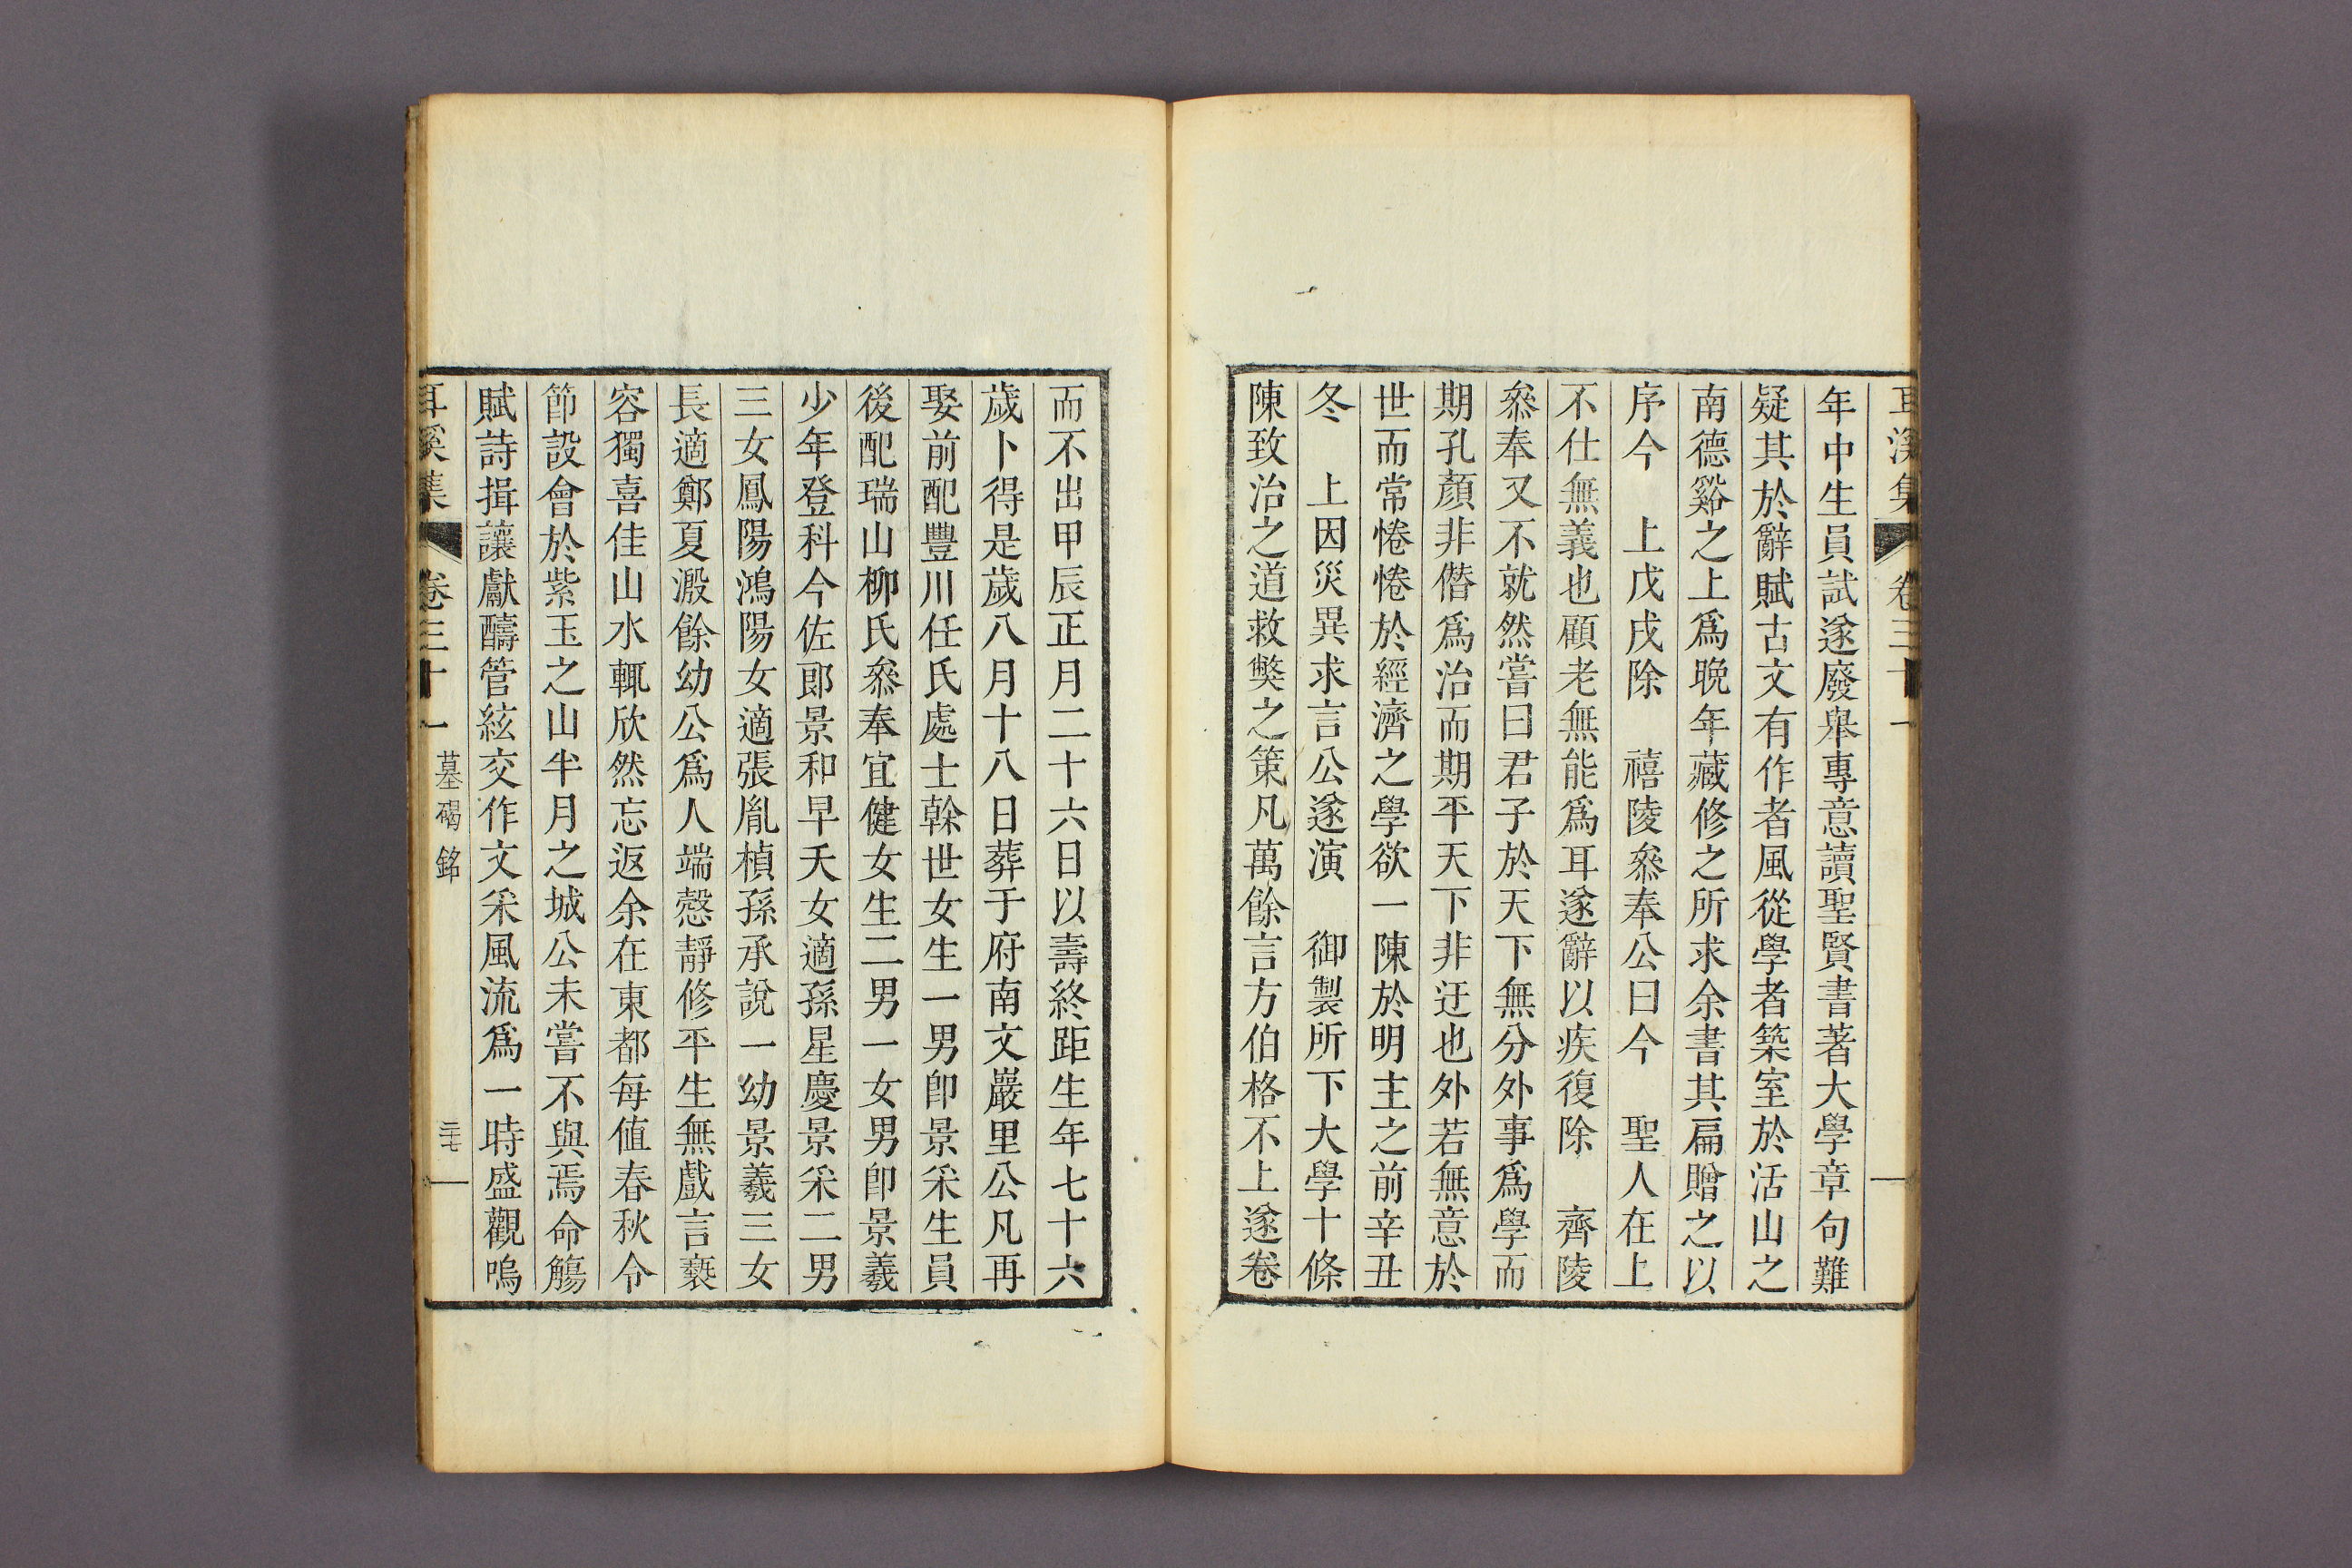 耳溪集 卷三十一
年中生員試遂廢擧專意讀聖賢書著大學章句難
疑其於辭賦古文有作者風從學者築室於活山之
南德谿之上爲晩年藏修之所求余書其扁贈之以
序今 上戊戌除 禧陵叅奉公曰今 聖人在上
不仕無義也顧老無能爲耳遂辭以疾復除 齊陵
叅奉又不就然嘗曰君子於天下無分外事爲學而
期孔顏非僭爲治而期平天下非迂也外若無意於
世而常惓惓於經濟之學欲一陳於明主之前辛丑
冬 上因災異求言公遂演 御製所下大學十條
陳致治之道救弊之策凡萬餘言方伯格不上遂卷
而不出甲辰正月二十六日以壽終距生年七十六
歲卜得是歲八月十八日葬于府南文巖里公凡再
娶前配豐川任氏處士榦世女生一男卽景采生員
後配瑞山柳氏叅奉宜健女生二男一女男卽景羲
少年登科今佐郞景和早夭女適孫星慶景采二男
三女鳳陽鴻陽女適張胤楨孫承說一幼景羲三女
長適鄭夏瀔餘幼公爲人端慤靜修平生無戲言褻
容獨喜佳山水輒欣然忘返余在東都每値春秋令
節設會於紫玉之山半月之城公未嘗不與焉命觴
賦詩揖讓獻醻管絃交作文采風流爲一時盛觀嗚
耳溪集 卷三十一 墓碣銘 三七